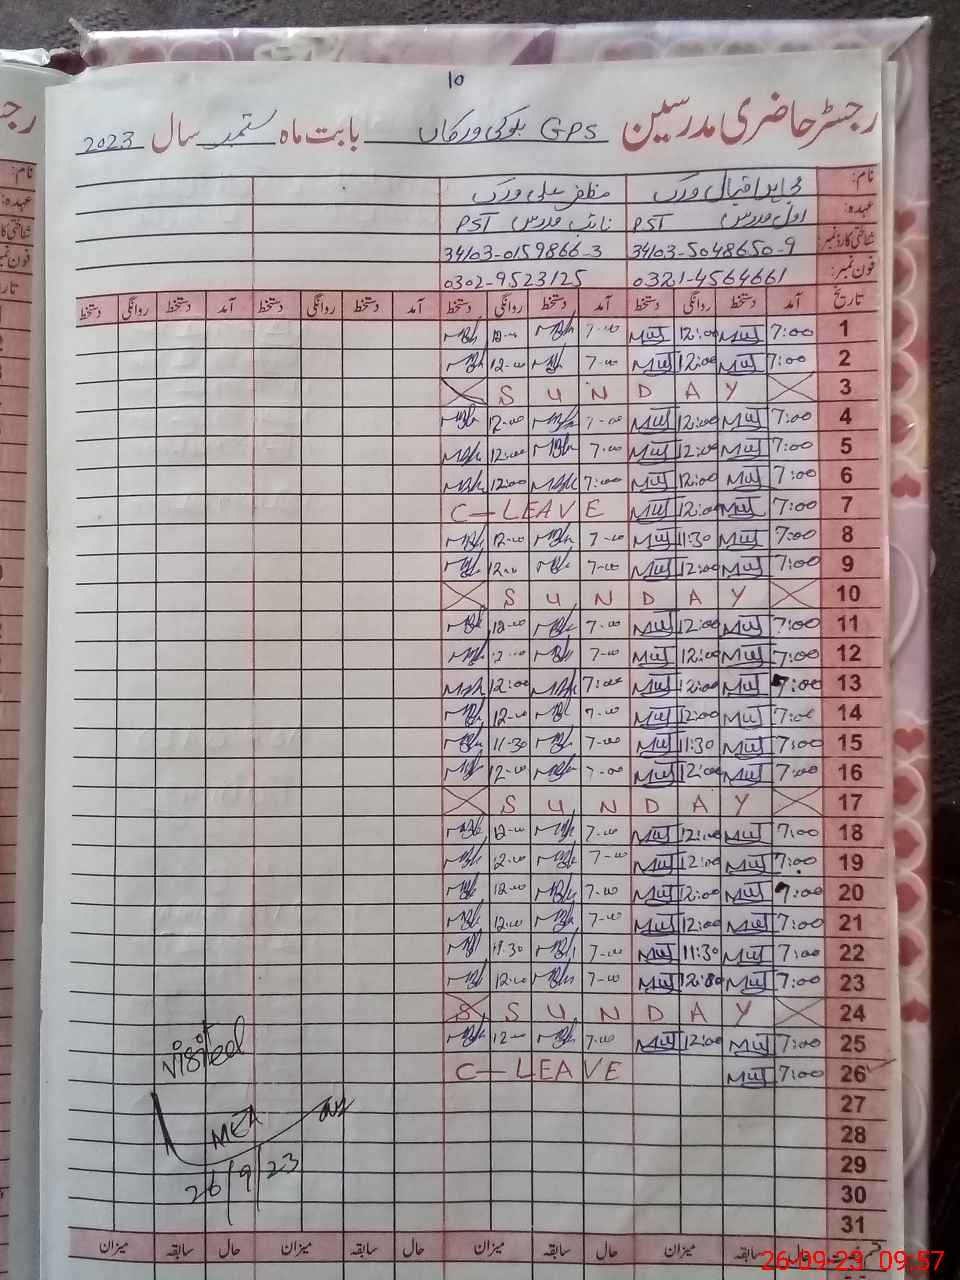 10
رجسٹر حاضری مدرسین GPS بلوکی ورکاں بابت ماہ ستمبر سال 2023
نام: مجاہد اقبال ورک مظفر علی ورک
عہدہ: اول مدرس PST نائب مدرس PST
شناختی کارڈ نمبر: 34103-5048650-9 34103-0159866-3
فون نمبر: 0321-4564661 0302-9523125
تاریخ آمد دستخط روانگی دستخط آمد دستخط روانگی دستخط آمد دستخط روانگی دستخط آمد دستخط روانگی دستخط
1 7:00 12:00 7-00 12-00
2 7:00 12:00 7-00 12-00
3 S U N D A Y
4 7:00 12:00 7-00 12-00
5 7:00 12:00 7-00 12:00
6 7:00 12:00 7:00 12:00
7 7:00 12:00 C-LEAVE
8 7:00 11:30 7-00 12-00
9 7:00 12:00 7-00 12-00
10 S U N D A Y
11 7:00 12:00 7-00 12-00
12 7:00 12:00 7-00 12-00
13 7:00 12:00 7:00 12:00
14 7:00 12:00 7-00 12-00
15 7:00 11:30 7-00 11-30
16 7:00 12:00 7-00 12-00
17 S U N D A Y
18 7:00 12:00 7-00 12-00
19 7:00 12:00 7-00 12-00
20 7:00 12:00 7-00 12-00
21 7:00 12:00 7-00 12-00
22 7:00 11:30 7-00 11-30
23 7:00 12:00 7-00 12-00
24 S U N D A Y
25 7:00 12:00 7-00 12-00
26 7:00 C-LEAVE
27
28
29
30
31
visited
MEA
26/9/23
حال سابقہ میزان حال سابقہ میزان حال سابقہ میزان حال سابقہ میزان
26-09-23 09:57